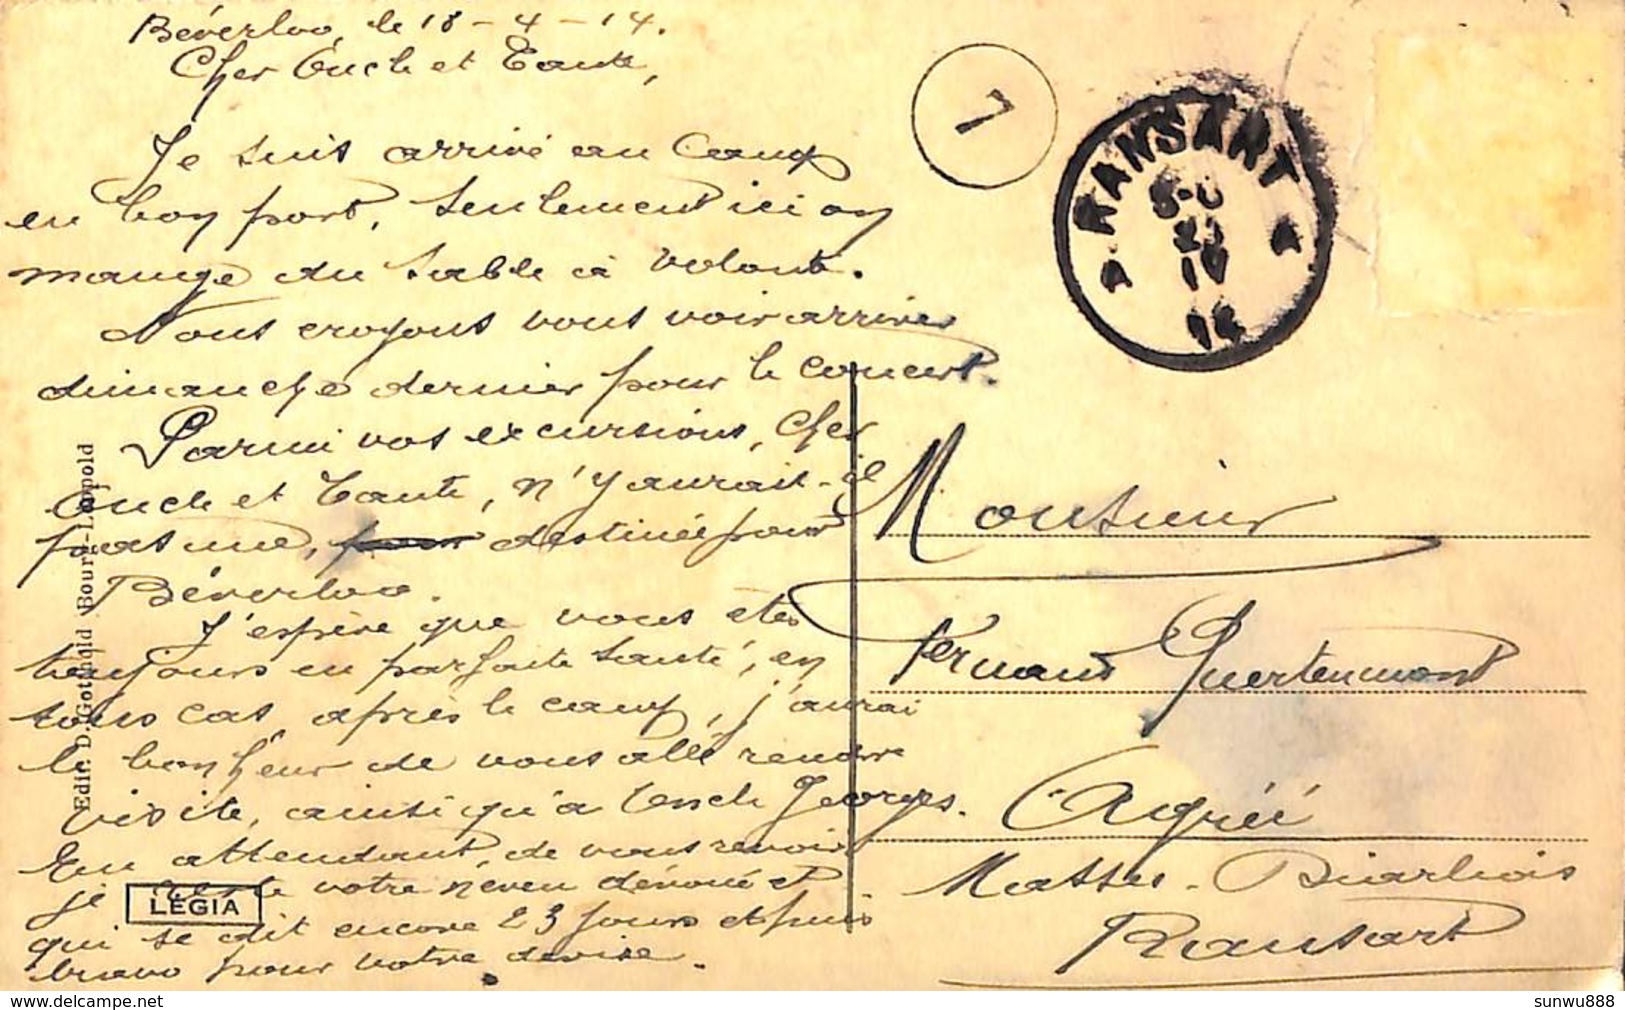 Béverloo, le 18-4-14.
Cher Oncle et Tante,
Je suis arrivé au Camp
en bon port, seulement ici on
mange du sable à volonté.
Nous croyons vous voir arriver
dimanche dernier pour le concert.
Parmi vos excursions, Cher
Oncle et Tante, n'y aurait-il
pas une, destinée pour
Béverloo.
J'espère que vous êtes
toujours en parfaite santé, en
tous cas, après le camp, j'aurai
le bonheur de vous allé rendre
visite, ainsi qu'à Oncle Georges.
En attendant, de vous revoir,
je reste votre neveu dévoué et
qui se dit encore 23 jours et puis
bravo pour votre devise.
LEGIA
Edit. D. Gothold Bourg-Léopold
7
RANSART
IV
14
Monsieur
Fernand Quertenmont
Agréé
Masses-Diarbois
Ransart
sunwu888